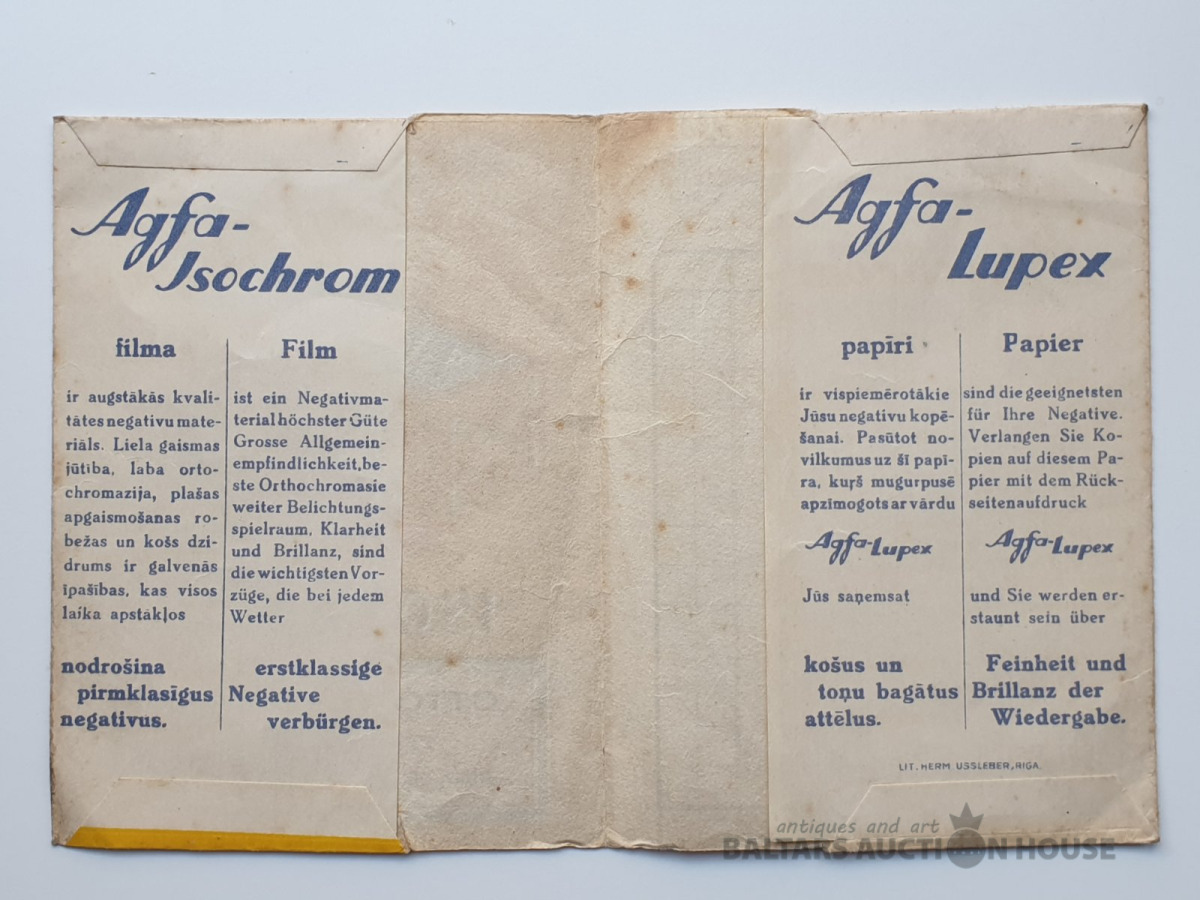 Agfa-
Isochrom
filma
ir augstākās kvali-
tātes negatīvu mate-
riāls. Liela gaismas
jūtība, laba orto-
chromazija, plašas
apgaismošanas ro-
bežas un košs dzi-
drums ir galvenās
īpašības, kas visos
laika apstākļos
nodrošina
pirmklasīgus
negativus.
Film
ist ein Negativma-
terial höchster Güte
Grosse Allgemein-
empfindlichkeit, be-
ste Orthochromasie
weiter Belichtungs-
spielraum, Klarheit
und Brillanz, sind
die wichtigsten Vor-
züge, die bei jedem
Wetter
erstklassige
Negative
verbürgen.
Agfa-
Lupex
papīri
ir vispiemērotākie
Jūsu negativu kopē-
šanai. Pasūtot no-
vilkumus uz šī papī-
ra, kuŗš mugurpusē
apzīmogots ar vārdu
Agfa-Lupex
Jūs saņemsat
košus un
toņu bagātus
attēlus.
Papier
sind die geeignetsten
für Ihre Negative.
Verlangen Sie Ko-
pien auf diesem Pa-
pier mit dem Rück-
seitenaufdruck
Agfa-Lupex
und Sie werden er-
staunt sein über
Feinheit und
Brillanz der
Wiedergabe.
LIT. HERM USSLEBER, RIGA.
antiques and art
BALTARS AUCTION HOUSE